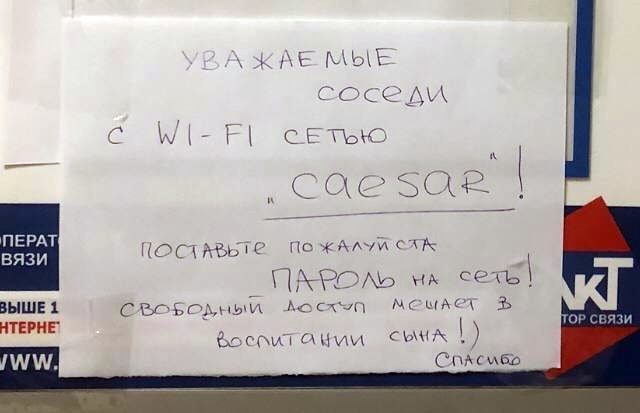 УВАЖАЕМЫЕ
СОСЕДИ
С WI-FI СЕТЬЮ
„CAESAR"!
ПОСТАВЬТЕ ПОЖАЛУЙСТА
ПАРОЛЬ НА СЕТЬ!
СВОБОДНЫЙ ДОСТУП МЕШАЕТ В
ВОСПИТАНИИ СЫНА!)
СПАСИБО
ПЕРАТ
ВЯЗИ
ВЫШЕ 1
НТЕРНЕ
www.
АКТ
ТОР СВЯЗИ